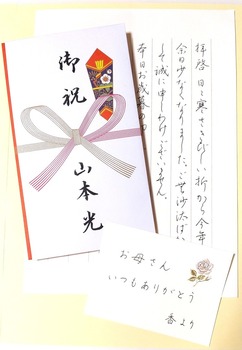 御祝
山本光
拝啓 日々寒さきびしい折から今年
余日少なくなりました。ご無沙汰ばか
して誠に申しわけございません。
本日お歳暮の
お母さん
いつもありがとう
香より